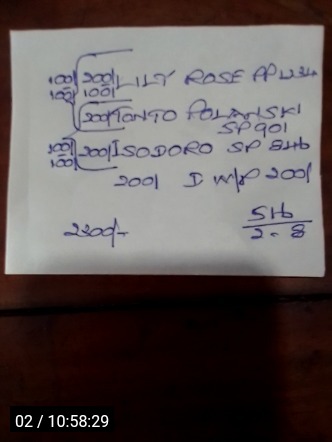 100/ 200/ LILY ROSE
100/ 100/
200/ TONTO POLANSKI
SP 901
100/ 200/ ISODORO SP 846
100/
200/ D W/P 200/
2300/-
5H6
2-8
02 / 10:58:29